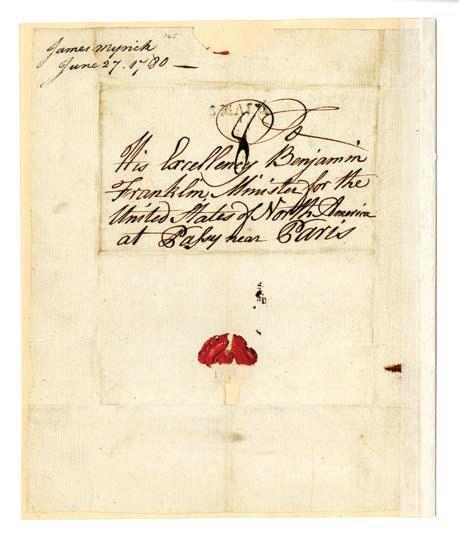 James Myrick
165
June 27. 1780 —
To
His Excellency Benjamin
Franklin, Minister for the
United States of North America
at Passy near Paris